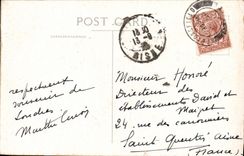 POST CARD
AISNE
respectueux
souvenir de
Londres
Monsieur Honoré
Directeur des
Etablissements David et
Maigret
24 rue des canonniers
Saint Quentin Aisne
(France)